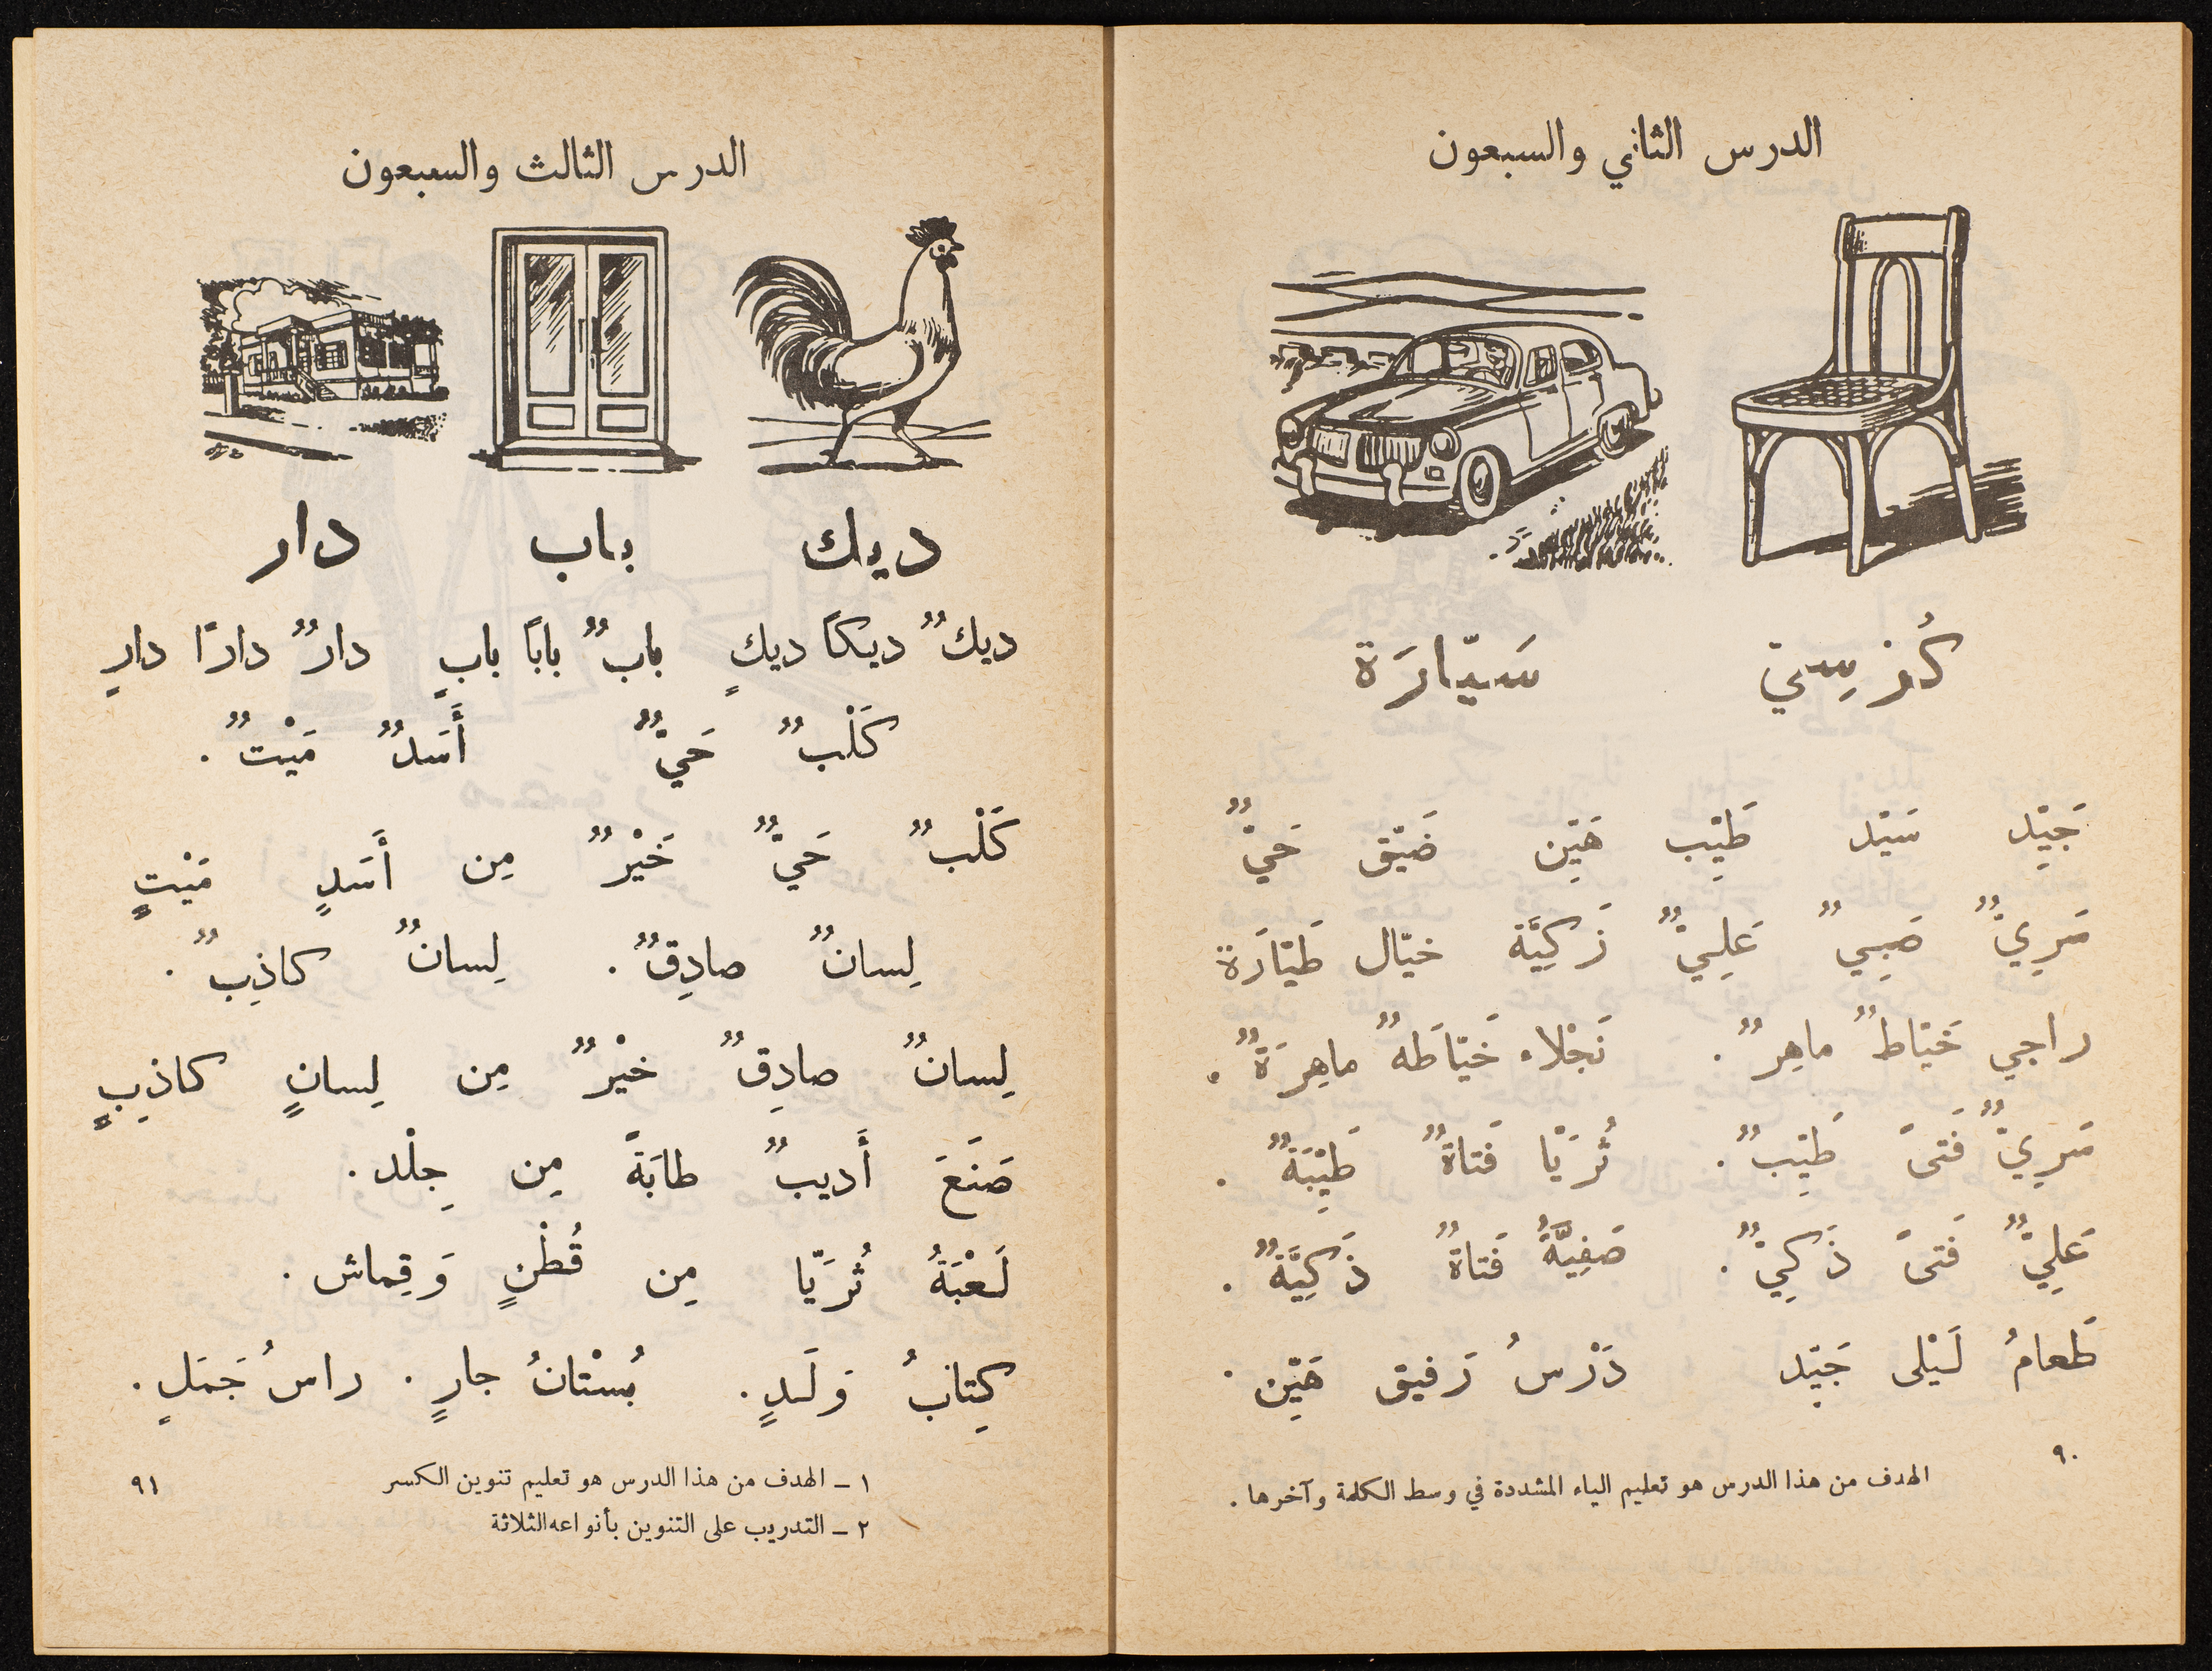 الدرس الثاني والسبعون
كُرْسِيّ سَيّارَة
جَيِّد سَيِّد طَيِّب هَيِّن ضَيِّق حَيٌّ
سَرِيٌّ صَبِيٌّ عَلِيٌّ زَكِيَّة خيّال طَيّارَة
راجي خَيّاطٌ ماهِرٌ . نَجْلاء خَيّاطَهٌ ماهِرَةٌ .
سَرِيٌّ فَتىً طَيِّبٌ . ثُرَيّا فَتاةٌ طَيِّبَةٌ .
عَلِيٌّ فَتىً ذَكِيٌّ . صَفِيَّةُ فَتاةٌ ذَكِيَّةٌ .
طَعامُ لَيْلى جَيِّد دَرْسُ رَفيق هَيِّن .
٩٠
الهدف من هذا الدرس هو تعليم الياء المشددة في وسط الكلمة وآخرها .
الدرس الثالث والسبعون
ديك باب دار
ديكٌ ديكاً ديكٍ بابٌ باباً بابٍ دارٌ داراً دارٍ
كَلْبٌ حَيٌّ أَسَدٌ مَيْتٌ .
كَلْبٌ حَيٌّ خَيْرٌ مِن أَسَدٍ مَيْتٍ
لِسانٌ صادِقٌ . لِسانٌ كاذِبٌ .
لِسانٌ صادِقٌ خيْرٌ مِن لِسانٍ كاذِبٍ
صَنَعَ أَديبٌ طابَةً مِن جِلْد .
لَعْبَةُ ثُرَيّا مِن قُطْنٍ وَقِماش .
كِتابُ وَلَدٍ . بُسْتانُ جارٍ . راسُ جَمَلٍ .
١ ـ الهدف من هذا الدرس هو تعليم تنوين الكسر
٢ ـ التدريب على التنوين بأنواعه الثلاثة
٩١